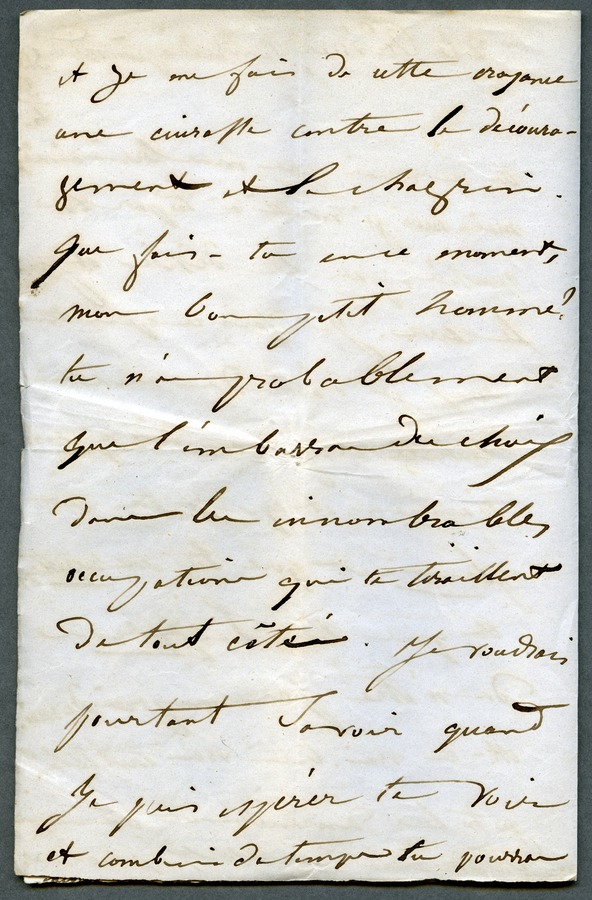 et je me fais de cette croyance
une cuirasse contre le découra-
gement et le chagrin.
Que fais-tu en ce moment,
mon bon petit homme?
tu n'as probablement
que l'embarras du choix
dans les innombrables
occupations qui te tiraillent
de tout côtés. Je voudrais
pourtant savoir quand
Je puis espérer te voir
et combien de temps tu pourras